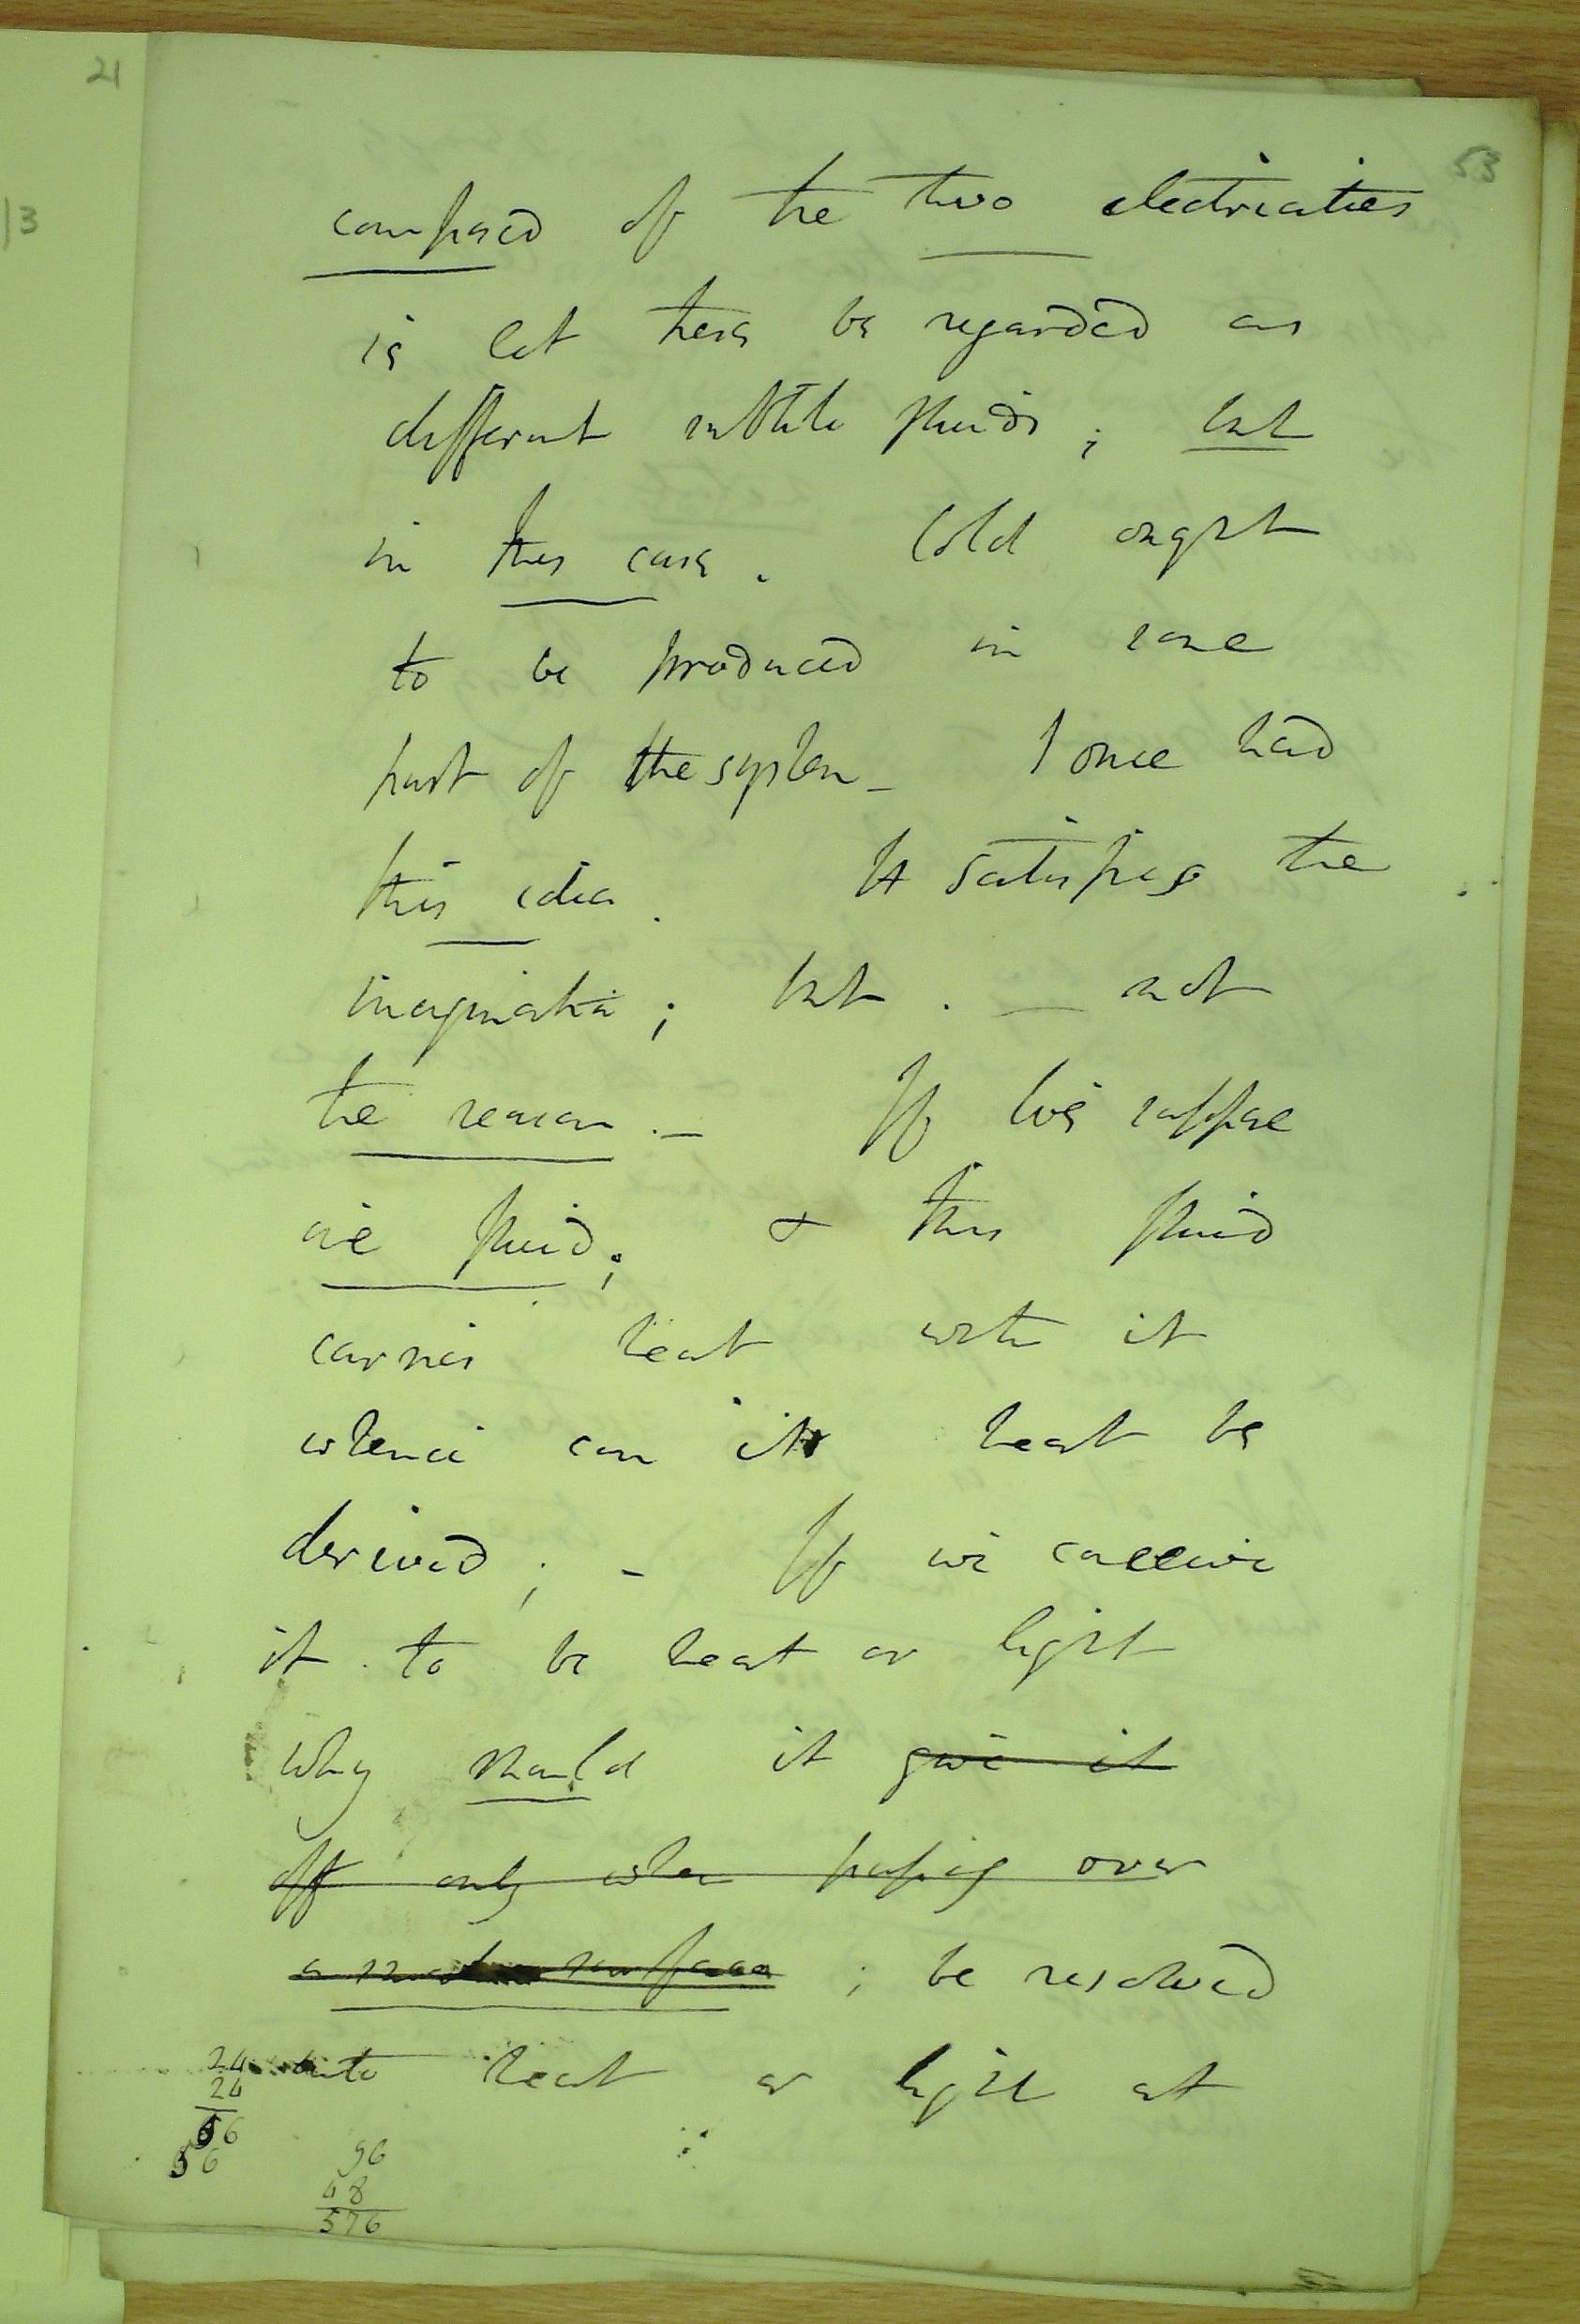 21
13
53
composed of the two electricities
ie let these be regarded as
different subtile fluids; but
in this case. Cold ought
to be produced in some
part of the system_ I once had
this idea. It satisfies the
imagination; but . _ not
the reason._ If we suppose
one fluid; & this fluid
carries heat with it
whence can its heat be
derived; - If we conceive
it to be heat or light
why should it give it
off only when passing over
a surface ; be resolved
into heat or light at
24
24
96
56
96
48
576